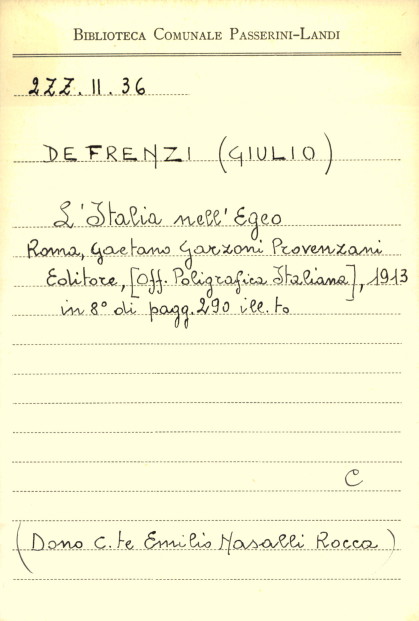 BIBLIOTECA COMUNALE PASSERINI-LANDI
2ZZ.II.36
DE FRENZI (GIULIO)
L'Italia nell'Egeo
Roma, Gaetano Garzoni Provenzani
Editore, [Off. Poligrafica Italiana], 1913
in 8° di pagg. 290 ill.to
C
(Dono C.te Emilio Nasalli Rocca)